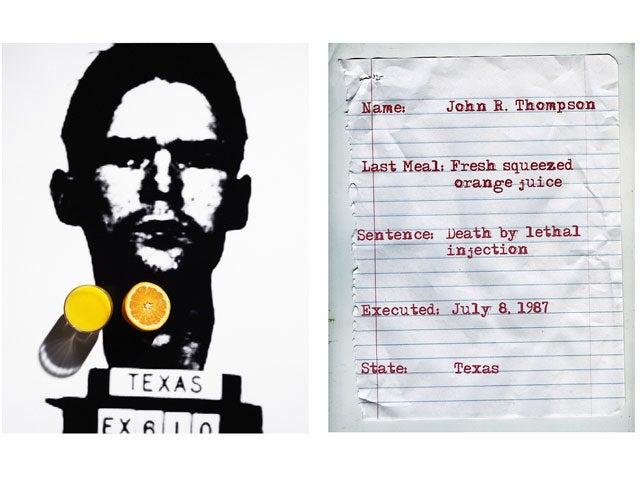 TEXAS
EX 610
Name: John R. Thompson
Last Meal: Fresh squeezed
orange juice
Sentence: Death by lethal
injection
Executed: July 8, 1987
State: Texas